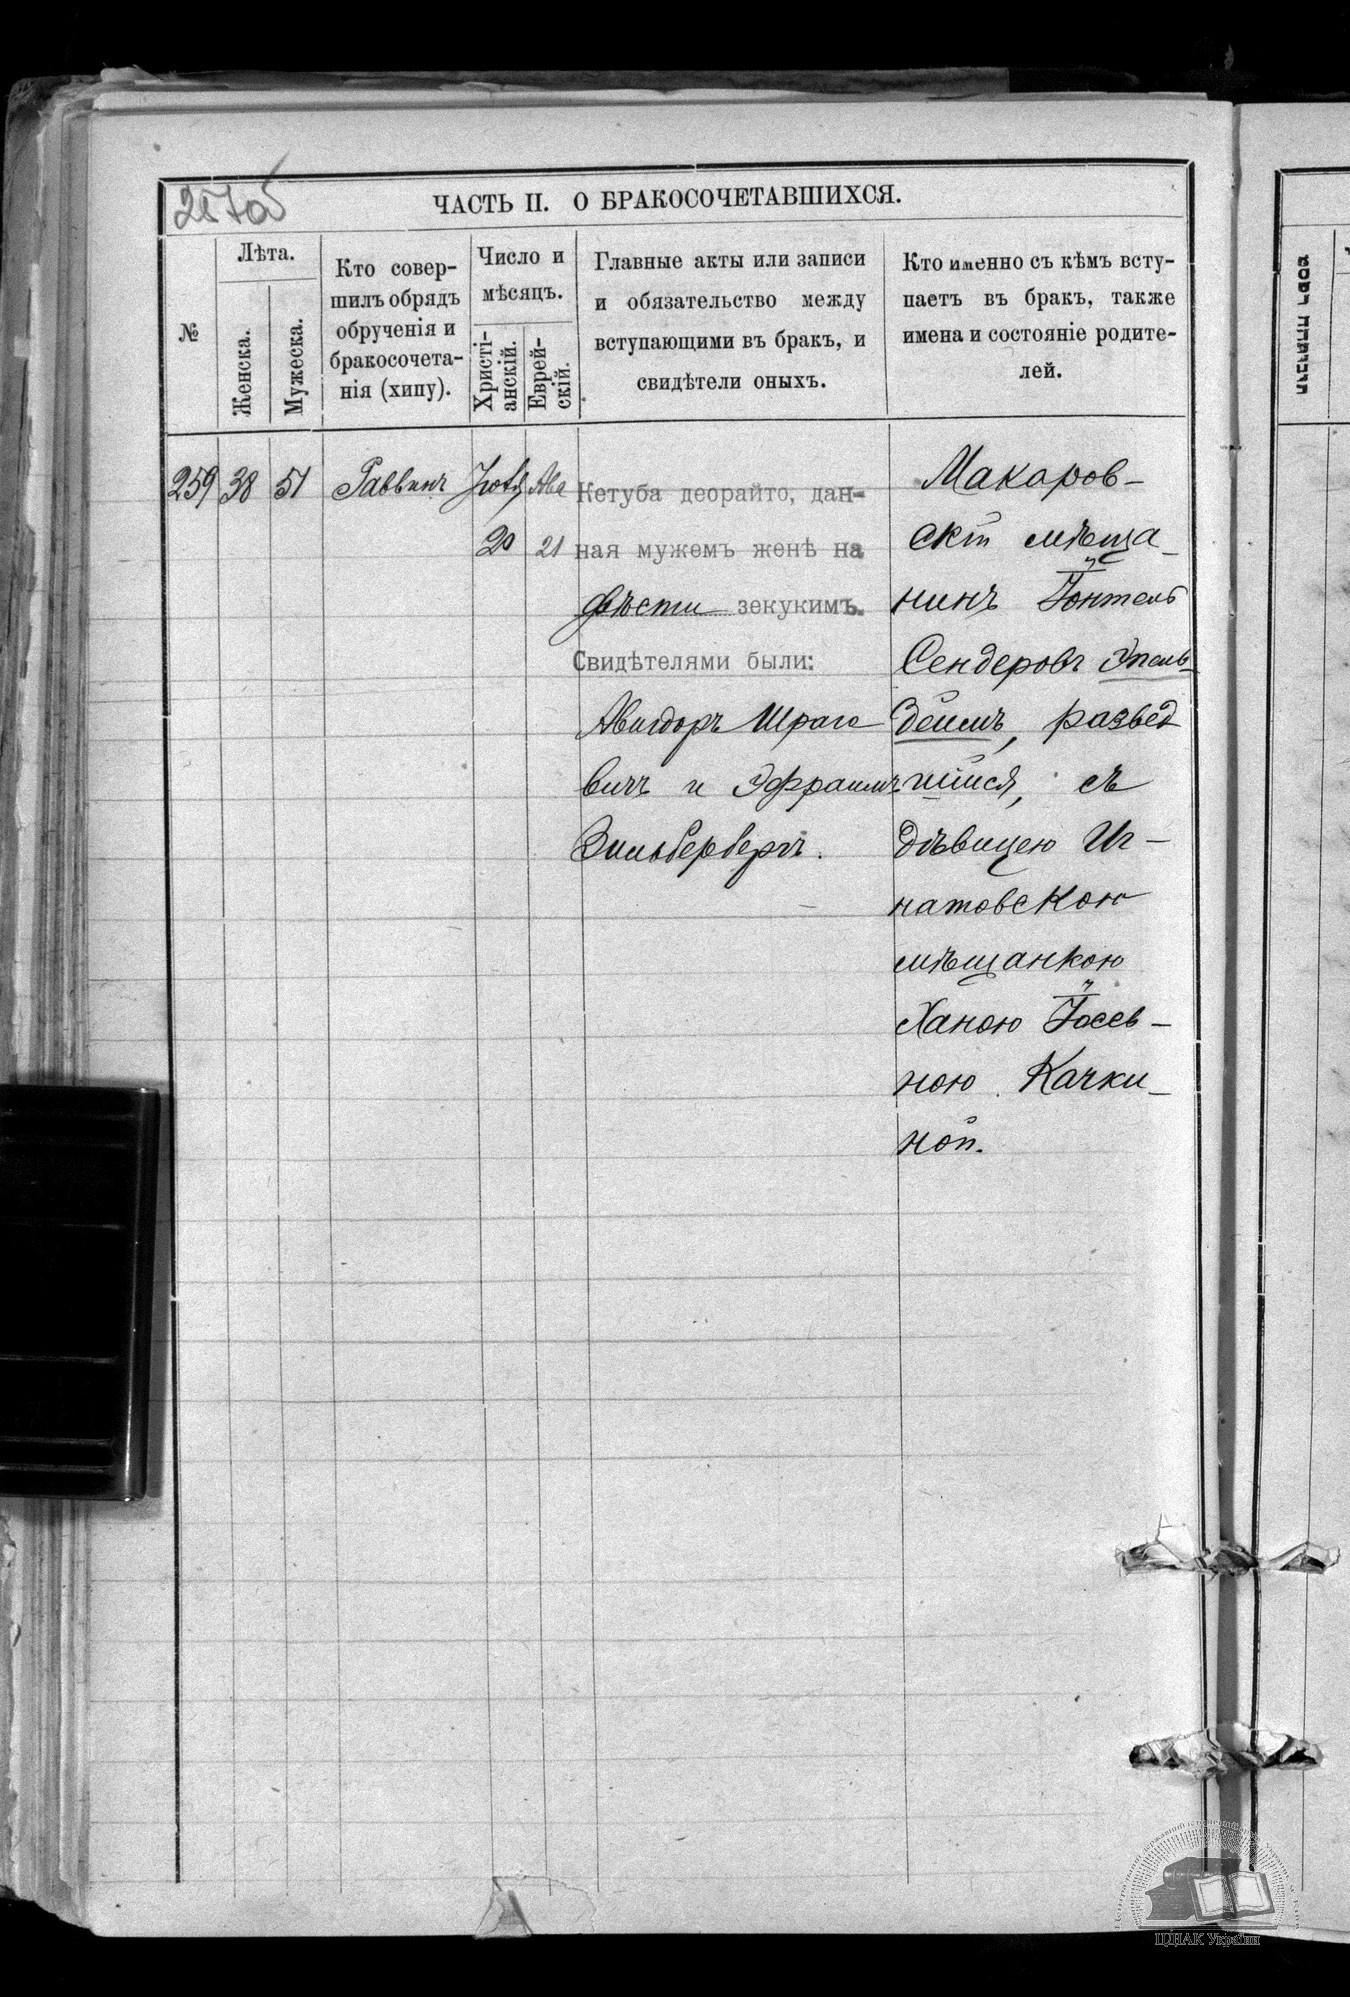 257об
ЧАСТЬ II. О БРАКОСОЧЕТАВШИХСЯ.
№
Лѣта.
Женска.
Мужеска.
Кто совер-
шилъ обрядъ
обрученія и
бракосочета-
нія (хипу).
Число и
мѣсяцъ.
Христі-
анскій.
Еврей-
скій.
Главные акты или записи
и обязательство между
вступающими въ бракъ, и
свидѣтели оныхъ.
Кто именно съ кѣмъ всту-
паетъ въ бракъ, также
имена и состояніе родите-
лей.
259
38
51
Раввинъ
Іюля
20
Ава
21
Кетуба деорайто, дан-
ная мужемъ женѣ на
двѣсти зекукимъ.
Свидѣтелями были:
Авигдоръ Шраго
вичъ и Эфраимъ
Зильбербергъ.
Макаров-
скій мѣща-
нинъ Іонтель
Сендеровъ Эпель-
беймъ, развед
шійся, съ
дѣвицею Иг-
натовскою
мѣщанкою
Ханою Іосев-
ною Качки-
ной.
ЦДІАК України